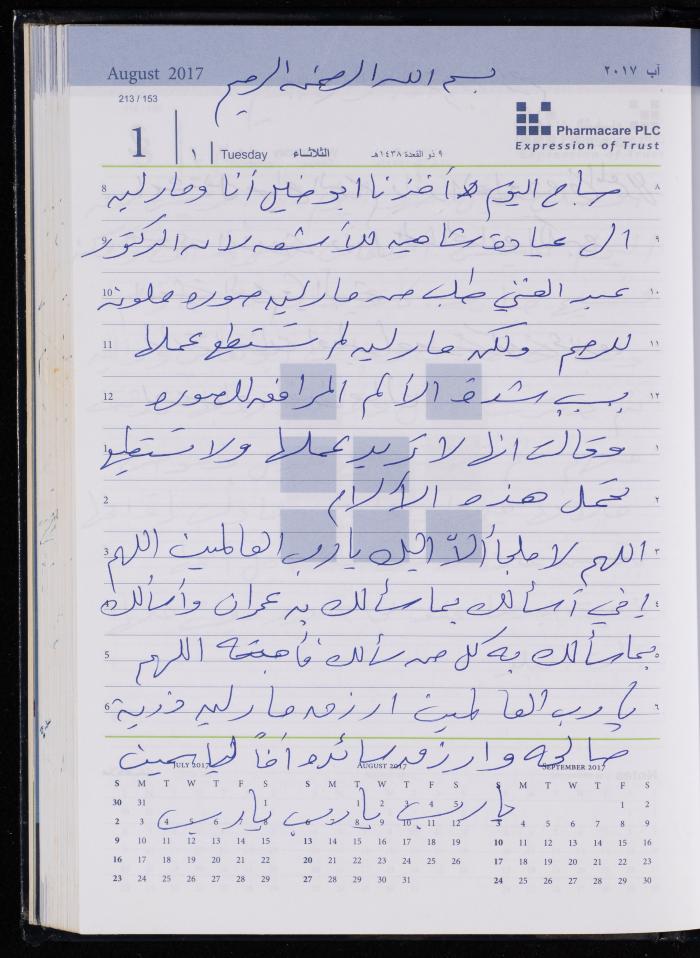 August 2017
آب ٢٠١٧
بسم الله الرحمن الرحيم
213 / 153
1 ١ Tuesday الثلاثاء ٩ ذو القعدة ١٤٣٨هـ
Pharmacare PLC
Expression of Trust
8 صباح اليوم أخذنا ابو خليل أنا ومارلين ٨
9 ال عيادة شاهين للأشعه لان الدكتور ٩
10 عبد الغني طلب من مارلين صوره ملونة ١٠
11 للرحم ولكن مارلين لم تستطع عملها ١١
12 بسبب شدة الألم المرافقه للصوره ١٢
1 وقالت انها لا تريد عملها ولا تستطيع ١
2 تحمل هذه الالام ٢
3 اللهم لا ملجأ ألاّ اليك يا رب العالمين اللهم ٣
4 إني أسألك بما سألك به عمران وأسألك ٤
5 بما سألك به كل من سألك فأجبته اللهم ٥
6 يا رب العالمين ارزق مارلين ذرية ٦
صالحه وارزق سائده أخاً لياسمين
يارب يارب يارب
JULY 2017 AUGUST 2017 SEPTEMBER 2017
S M T W T F S S M T W T F S S M T W T F S
30 31 1 1 2 3 4 5 1 2
2 3 4 5 6 7 8 6 7 8 9 10 11 12 3 4 5 6 7 8 9
9 10 11 12 13 14 15 13 14 15 16 17 18 19 10 11 12 13 14 15 16
16 17 18 19 20 21 22 20 21 22 23 24 25 26 17 18 19 20 21 22 23
23 24 25 26 27 28 29 27 28 29 30 31 24 25 26 27 28 29 30